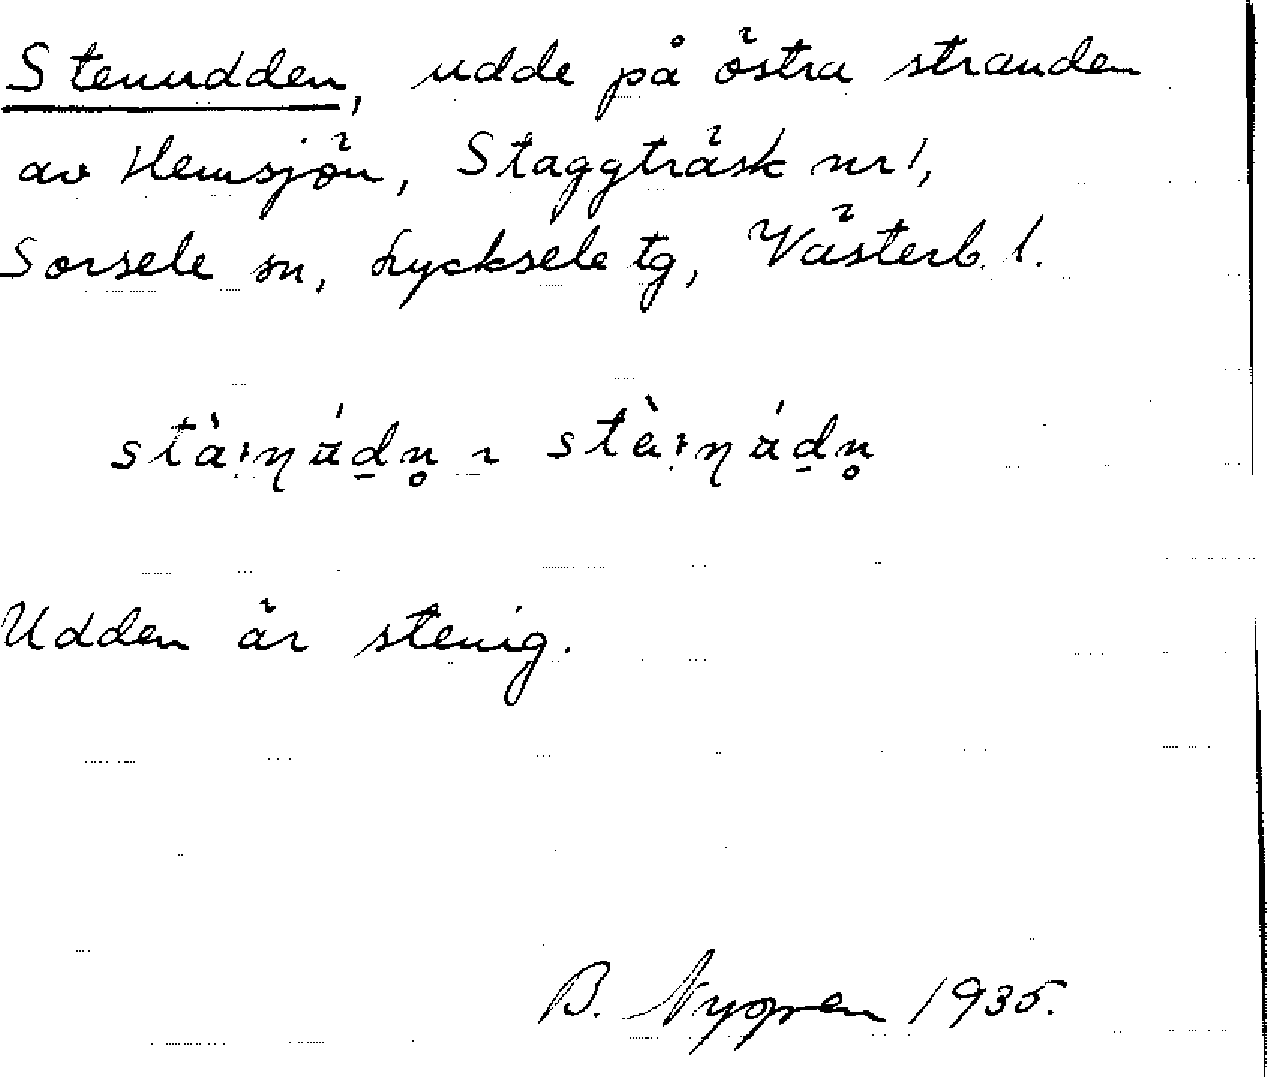 Stenudden, udde på östra stranden
av Hemsjön, Staggträsk nr 1,
Sorsele sn, Lycksele tg, Västerb. l.
Udden är stenig.
B. Nygren 1935.